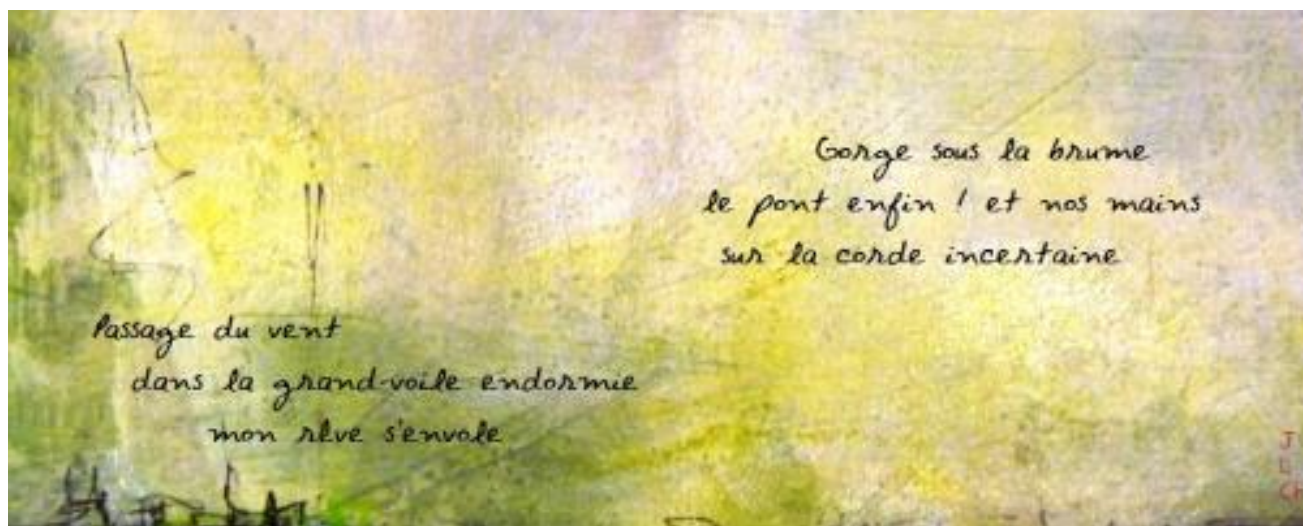 Gorge sous la brume
le pont enfin ! et nos mains
sur la corde incertaine
Passage du vent
dans la grand-voile endormie
mon rêve s'envole